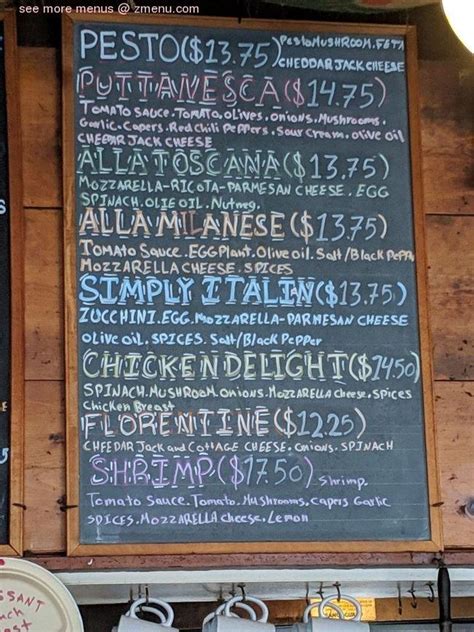 see more menus @ zmenu.com
PESTO($13.75) Pesto MUSHROOM. FETA
CHEDDAR JACK CHEESE
PUTTANESCA($14.75)
Tomato Sauce. Tomato. olives. onions. Mushrooms.
Garlic. Capers. Red Chili Peppers. Sour Cream. olive oil
CHEDDAR JACK CHEESE
ALLA TOSCANA($13.75)
MOZZARELLA-RICOTA-PARMESAN CHEESE. EGG
SPINACH. OLIE OIL. Nutmeg.
ALLA MILANESE($13.75)
Tomato Sauce. EGGPlant. Olive oil. Salt/Black Pepper
MOZZARELLA CHEESE. SPICES
SIMPLY ITALIN($13.75)
ZUCCHINI. EGG. MOZZARELLA-PARMESAN CHEESE
Olive oil. SPICES. Salt/Black Pepper
CHICKEN DELIGHT($14.50)
SPINACH. MUSHROOM. Onions. MOZZARELLA Cheese. Spices
Chicken Breast
FLORENTINE($12.25)
CHEEDAR Jack and COTTAGE CHEESE. Onions. SPINACH
SHRIMP($17.50) Shrimp.
Tomato Sauce. Tomato. Mushrooms. Capers Garlic
SPICES. MOZZARELLA Cheese. Lemon